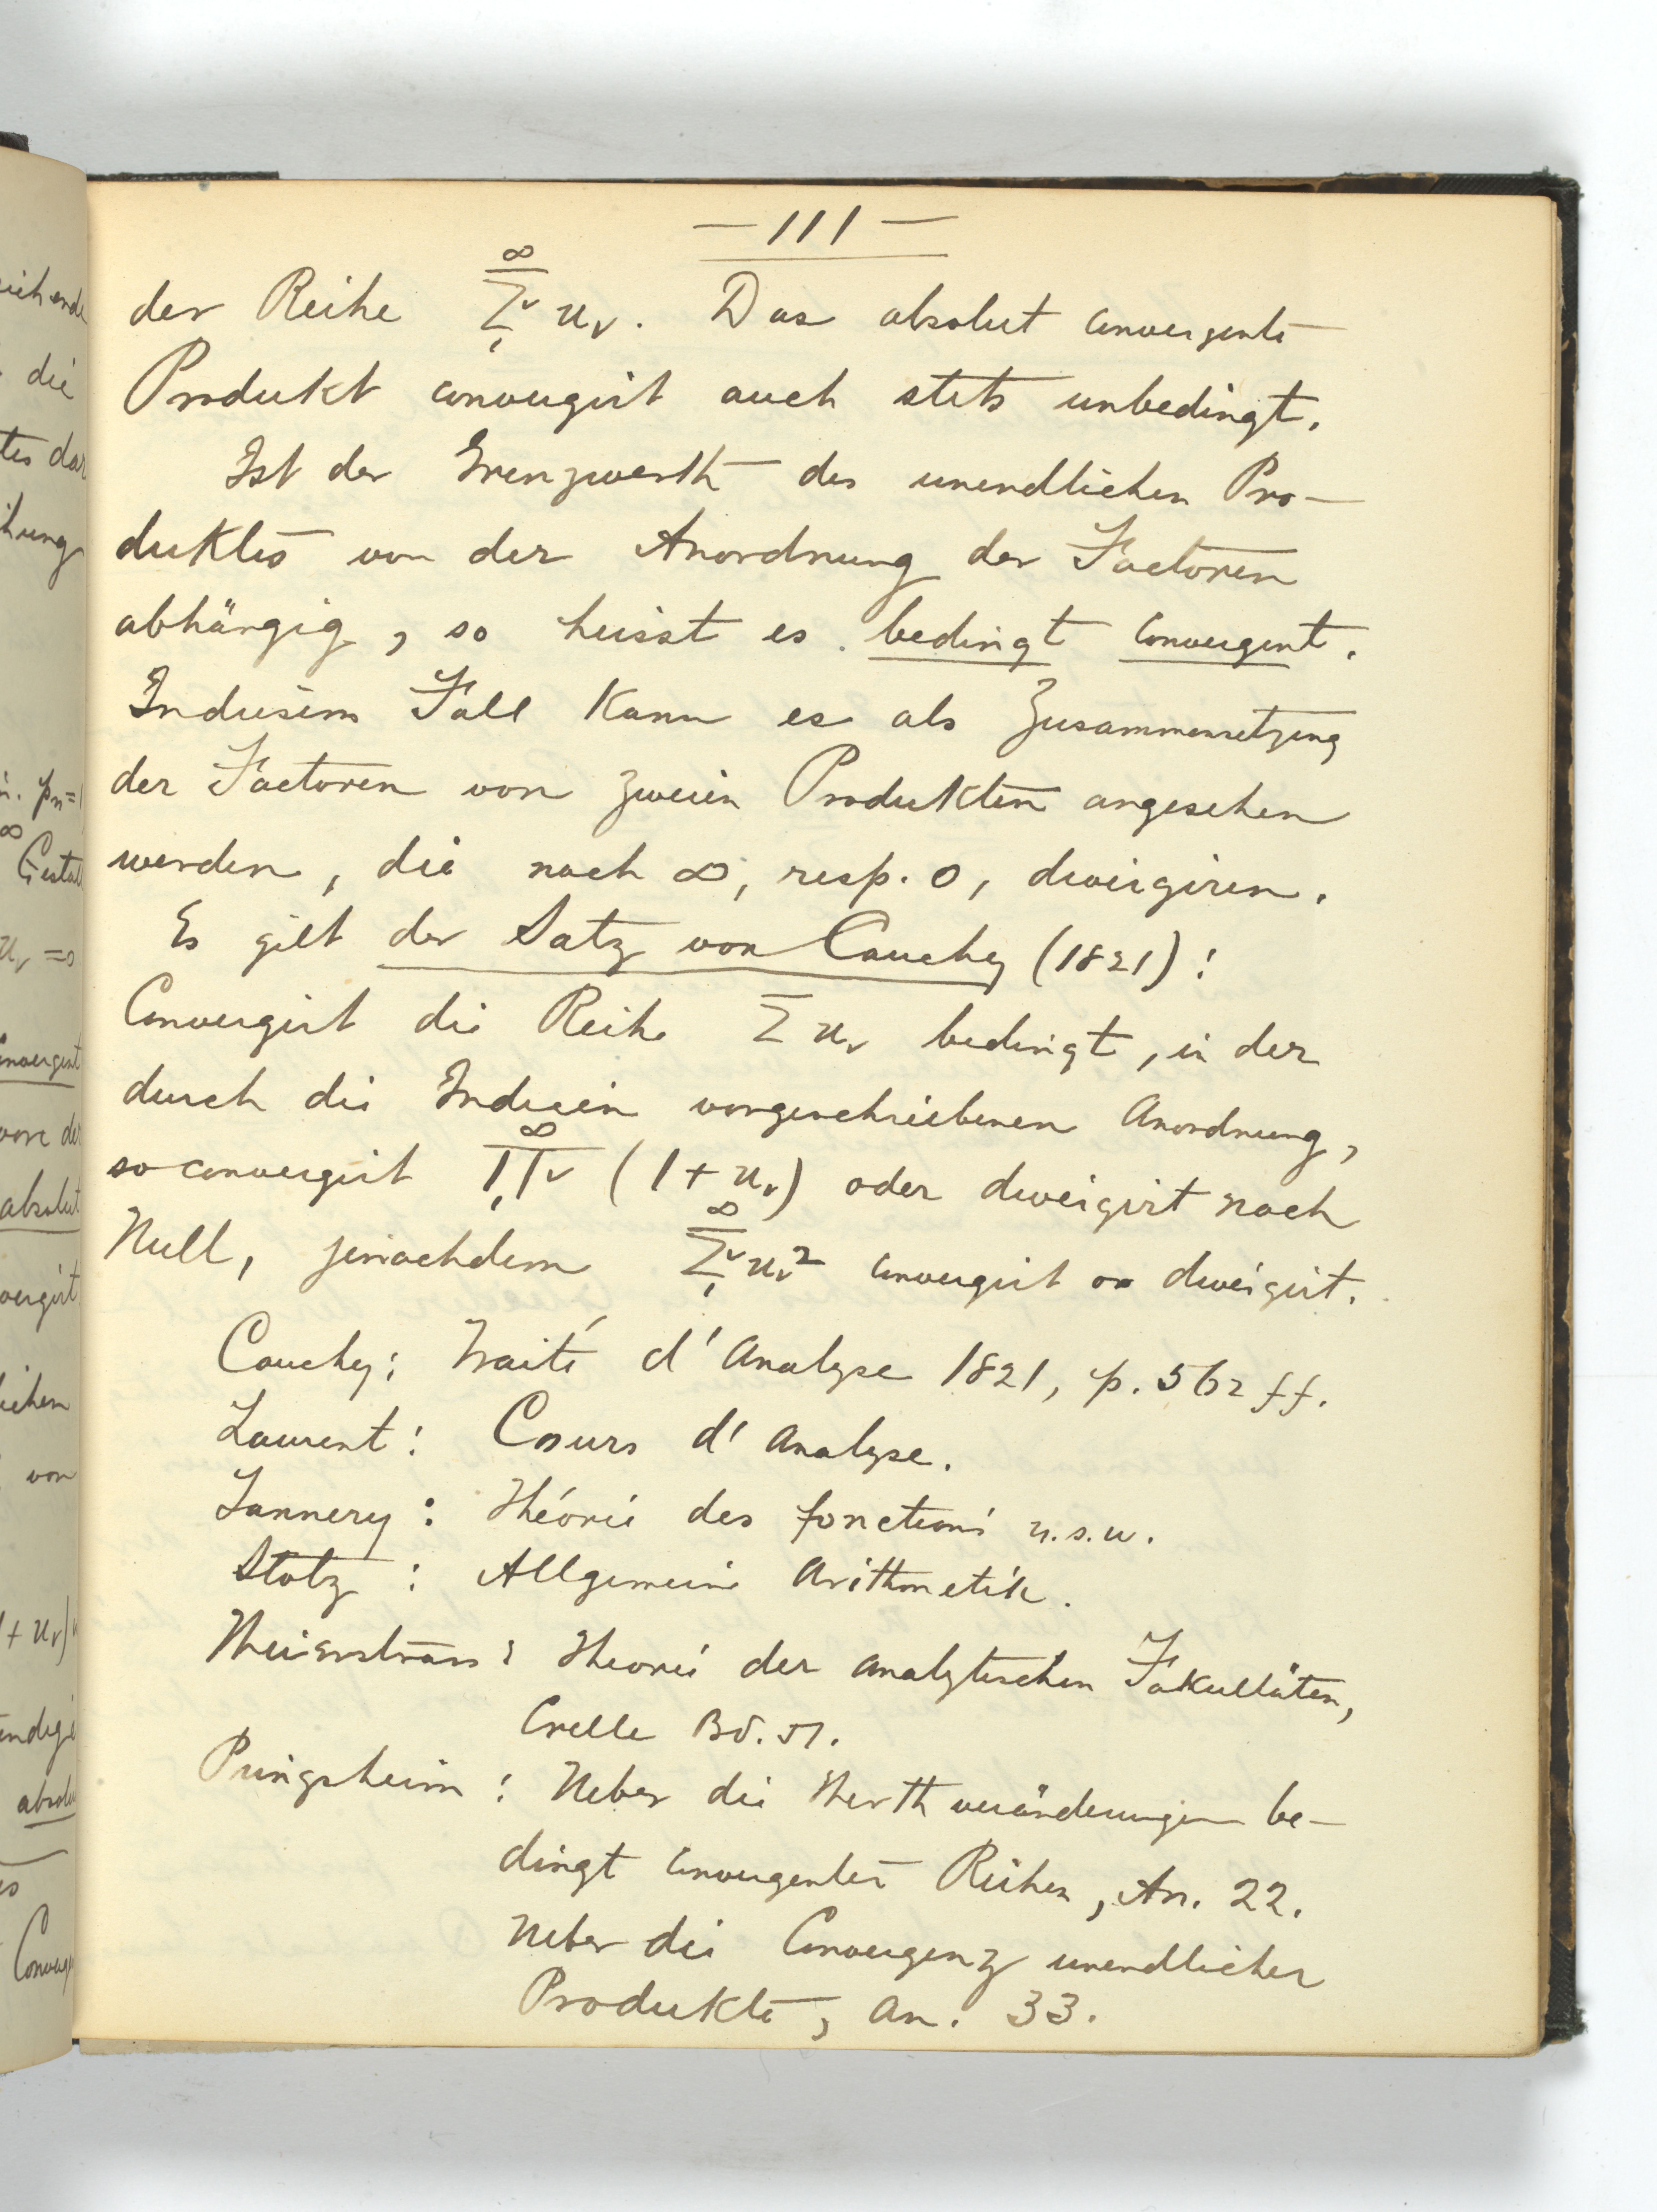 — 111 —
der Reihe ∞ Σν 1 uν. Das absolut convergente
Produkt convergirt auch stets unbedingt.
Ist der Grenzwerth des unendlichen Pro-
duktes von der Anordnung der Factoren
abhängig, so heisst es bedingt convergent.
Indiesem Fall kann es als Zusammensetzung
der Factoren von zweien Produkten angesehen
werden, die nach ∞, resp. 0, divergiren.
Es gilt der Satz von Cauchy (1821):
Convergirt die Reihe Σ uν bedingt, in der
durch die Indicien vorgeschriebenen Anordnung,
so convergirt ∞ Πν 1 (1 + uν) oder divergirt nach
Null, jenachdem ∞ Σν 1 uν² convergirt or divergirt.
Cauchy: Traité d'Analyse 1821, p. 562 ff.
Laurent: Cours d'Analyse.
Tannery: Théorie des fonctions u.s.w.
Stolz: Allgemeine Arithmetik.
Weierstrass: Theorie der analytischen Fakultäten,
Crelle Bd. 51.
Pringsheim: Ueber die Werthveränderungen be-
dingt convergenter Reihen, An. 22.
Ueber die Convergenz unendlicher
Produkte, An. 33.